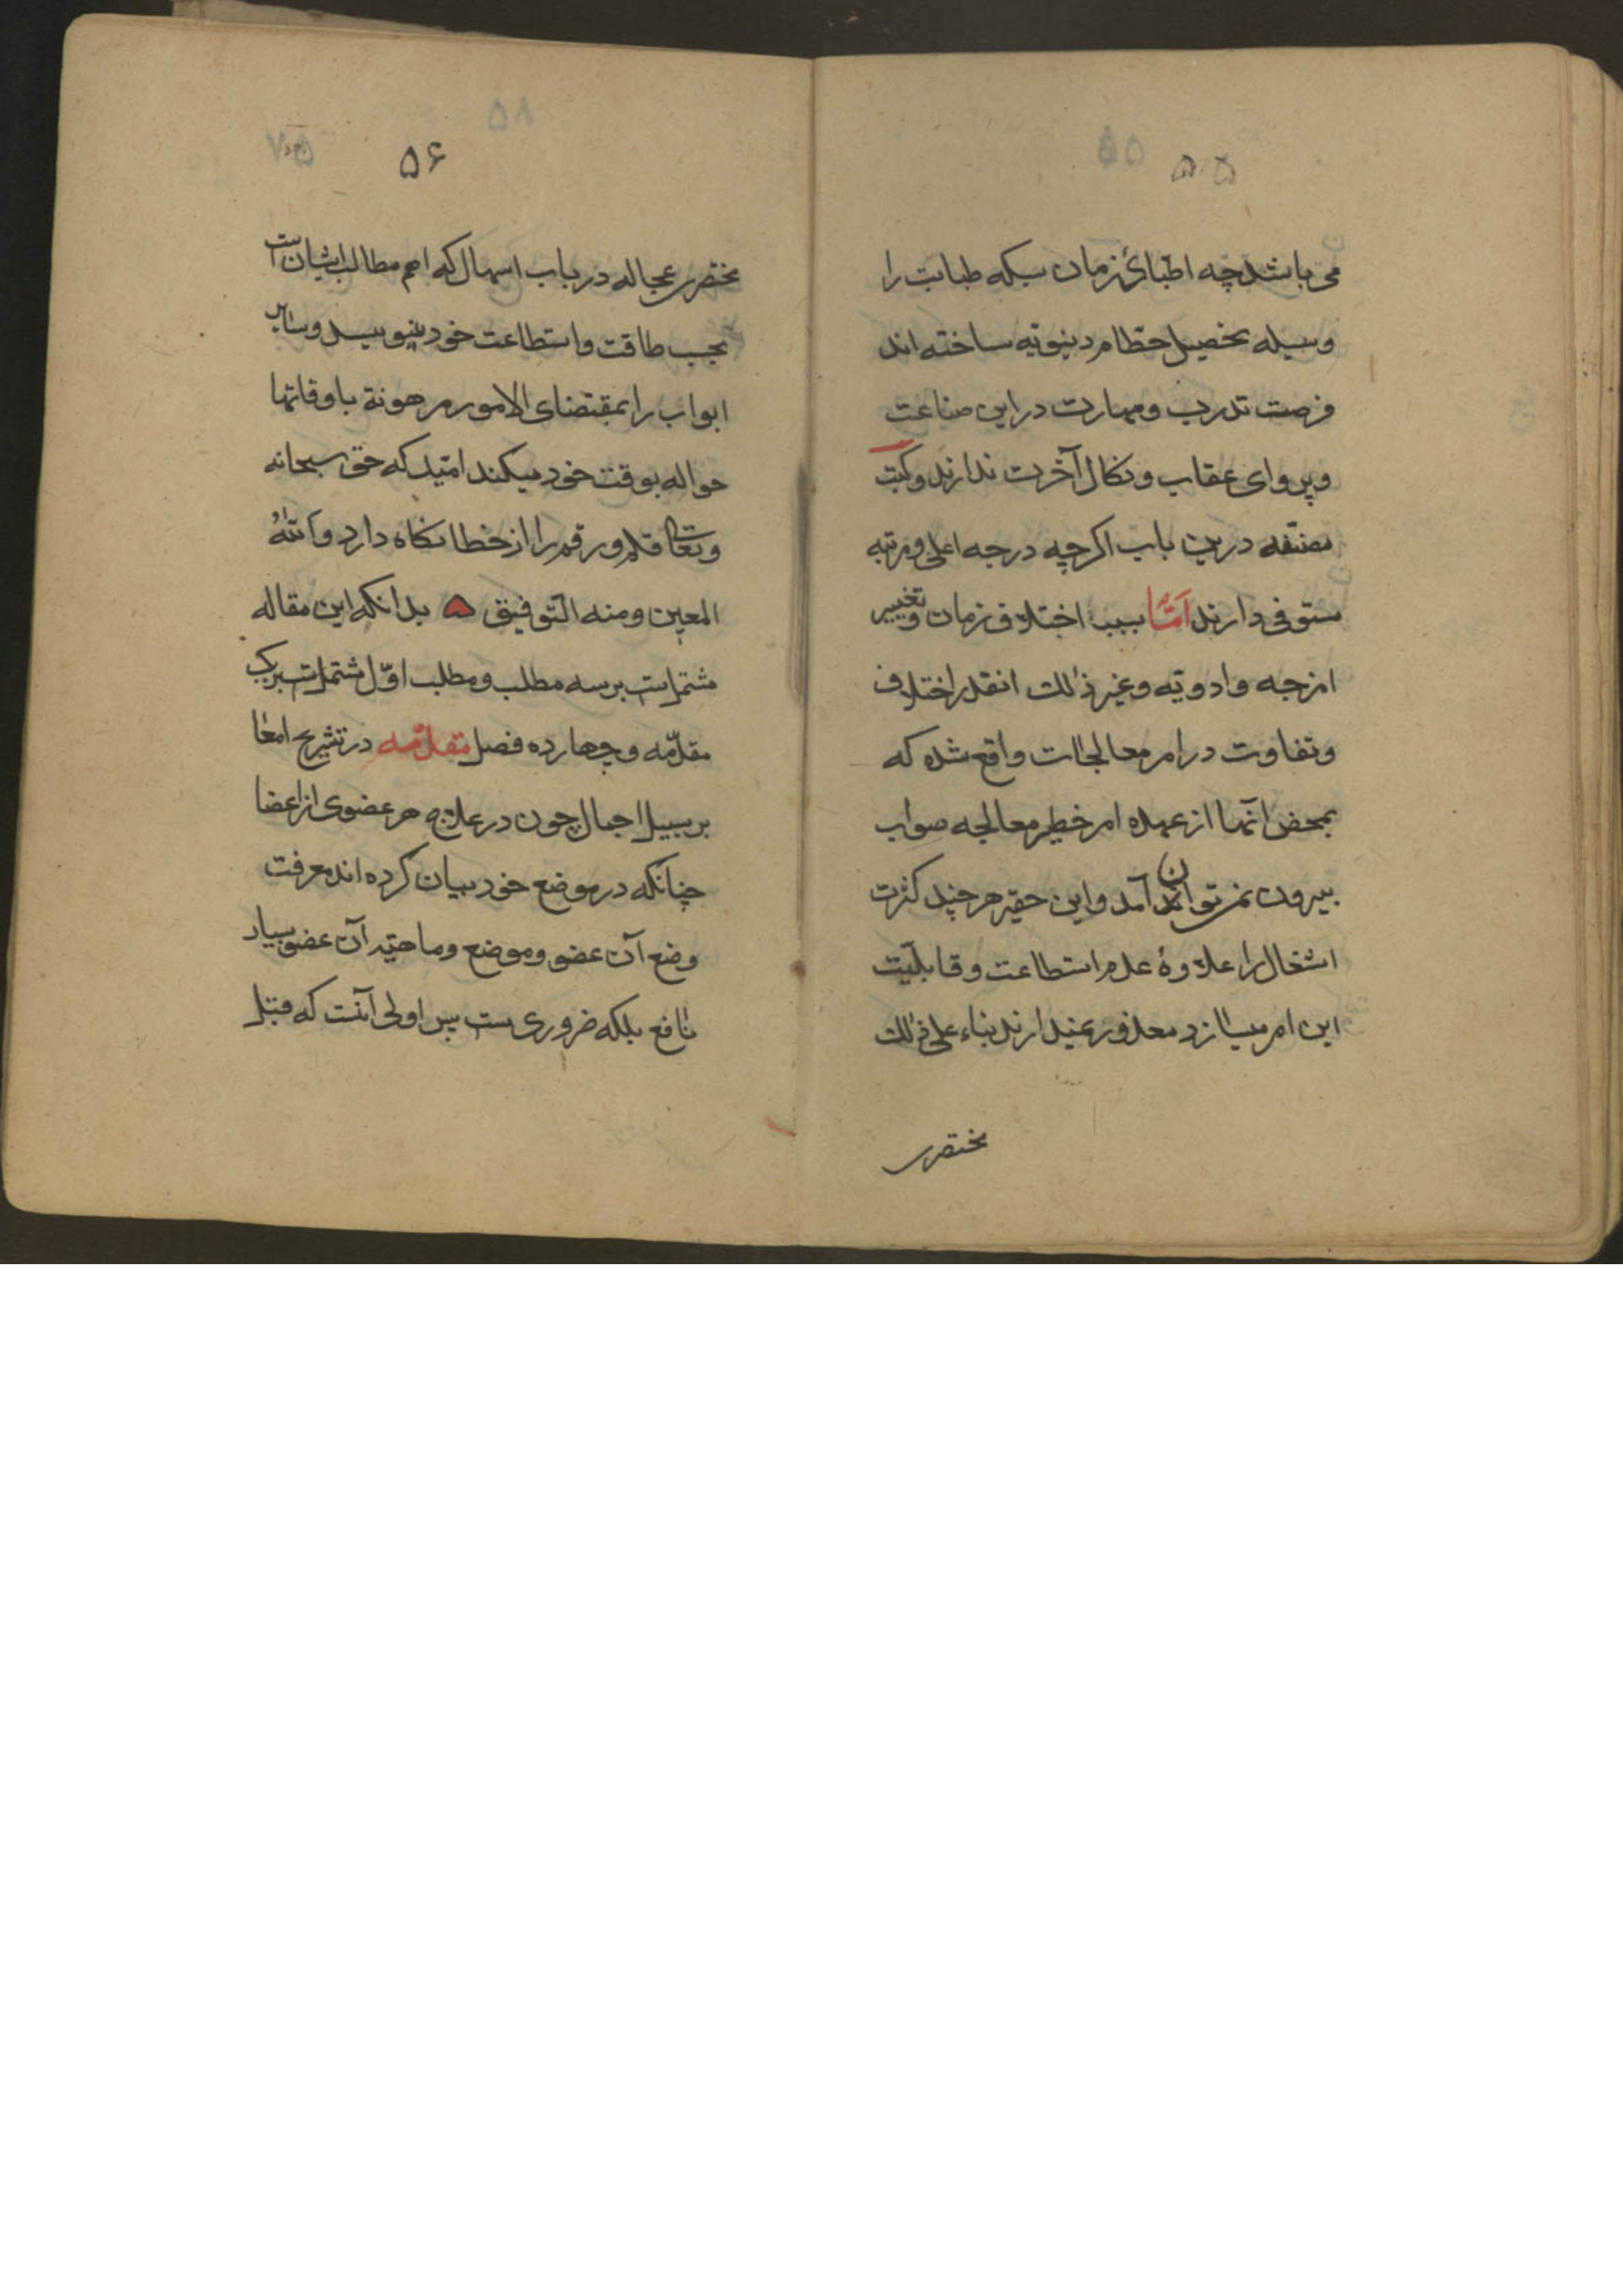 ۵۵
می باشد چه اطبائ زمان بسکه طبابت را
وسیله تحصیل حطام دنیویه ساخته اند
فرصت تدرب و مهارت در این صناعت
و پروای عقاب و نکال آخرت ندارند و کتب
مصنفه درین باب اکرچه درجه اعلی و مرتبه
مستوفی دارند امّا بسبب اختلاف زمان و تغییر
امزجه و ادویه و غیر ذلک انقدر اختلاف
و تفاوت در امر معالجات واقع شده که
بمحض آنها از عهده امر خطیر معالجه صواب
بیرون نمی توان آمد و این حقیر هر چند کثرت
اشغال را علاوهٔ عدم استطاعت و قابلیّت
این امر میسازد معذور نمیدارند بناء علی ذلک
مختصری
۵۶
مختصری عجاله در باب اسهال که اهم مطالب ایشان است
بحسب طاقت و استطاعت خود بنویسد و سایر
ابواب را بمقتضای الامور مرهونة باوقاتها
حواله بوقت خود میکند امّید که حق سبحانه
و تعالی قلم و رقم را از خطا نکاه دارد و الله
المعین و منه التوفیق ه بدانکه این مقاله
مشتمل است بر سه مطلب و مطلب اوّل مشتمل است بر یک
مقدّمه و چهارده فصل مقدّمه در تشریح امعا
بر سبیل اجمال چون در علاج هر عضوی از اعضا
چنانکه در موضع خود بیان کرده اند معرفت
وضع آن عضو و موضع و ماهیّه آن عضو بسیار
نافع بلکه ضروری ست پس اولی آنست که قبل